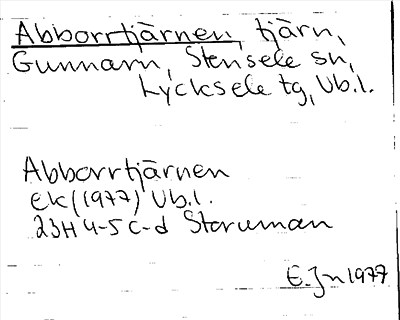 Abborrtjärnen, tjärn,
Gunnarn, Stensele sn,
Lycksele tg, Vb.l.
Abborrtjärnen
ek (1977) Vb.l.
23H 4-5 c-d Storuman
E. Jn 1977